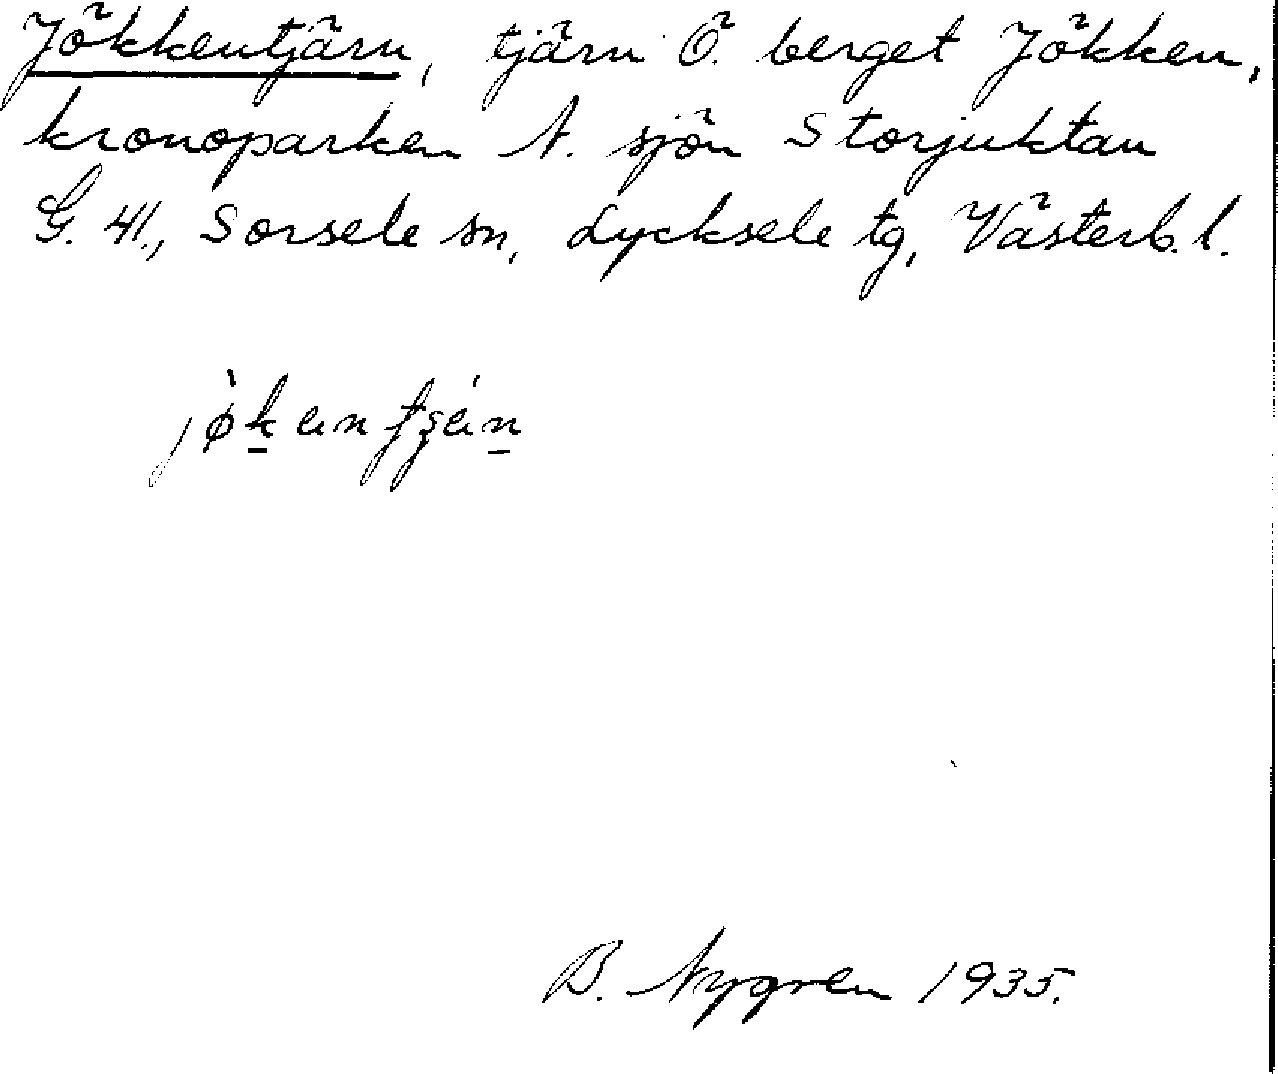 Jökkentjärn, tjärn Ö. berget Jökken,
kronoparken N. sjön Storjuktan
G. 41., Sorsele sn, Lycksele tg, Västerb. l.
B. Nygren 1935.